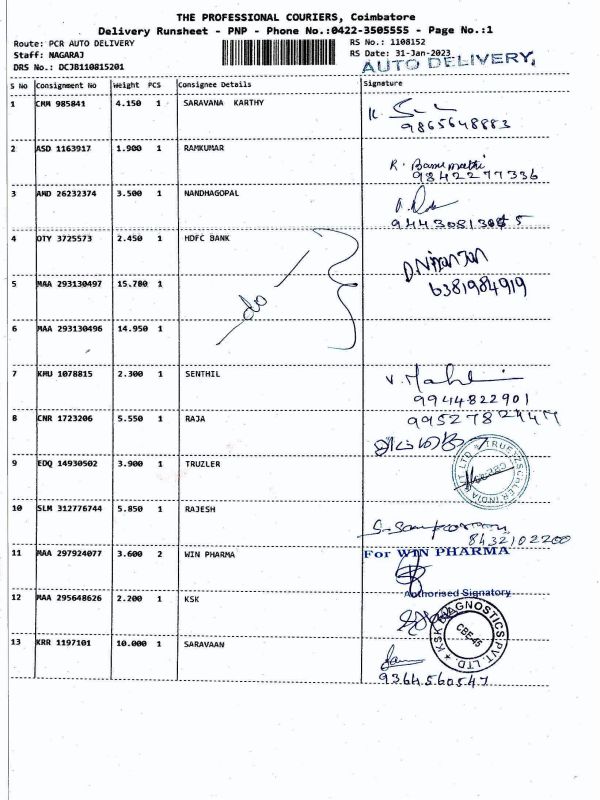 THE PROFESSIONAL COURIERS, Coimbatore
Delivery Runsheet - PNP - Phone No.:0422-3505555 - Page No.:1
Route: PCR AUTO DELIVERY
RS No.: 1108152
Staff: NAGARAJ
RS Date: 31-Jan-2023
DRS No.: DCJB110815201
AUTO DELIVERY,
S No Consignment No Weight PCS Consignee Details Signature
1 CMM 985841 4.150 1 SARAVANA KARTHY
9865648883
2 ASD 1163917 1.900 1 RAMKUMAR
9842277336
3 AMD 26232374 3.500 1 NANDHAGOPAL
4 OTY 3725573 2.450 1 HDFC BANK
D. Niranjan
5 MAA 293130497 15.780 1
6381984919
do
6 MAA 293130496 14.950 1
7 KMU 1078815 2.300 1 SENTHIL
9944822901
8 CNR 1723206 5.550 1 RAJA
9 EDQ 14930502 3.900 1 TRUZLER
10 SLM 312776744 5.850 1 RAJESH
8432102200
11 MAA 297924077 3.600 2 WIN PHARMA
For WIN PHARMA
Authorised Signatory
12 MAA 295648626 2.200 1 KSK
KSK DIAGNOSTICS PVT. LTD.
CBE-45
13 KRR 1197101 10.000 1 SARAVAAN
9364560547